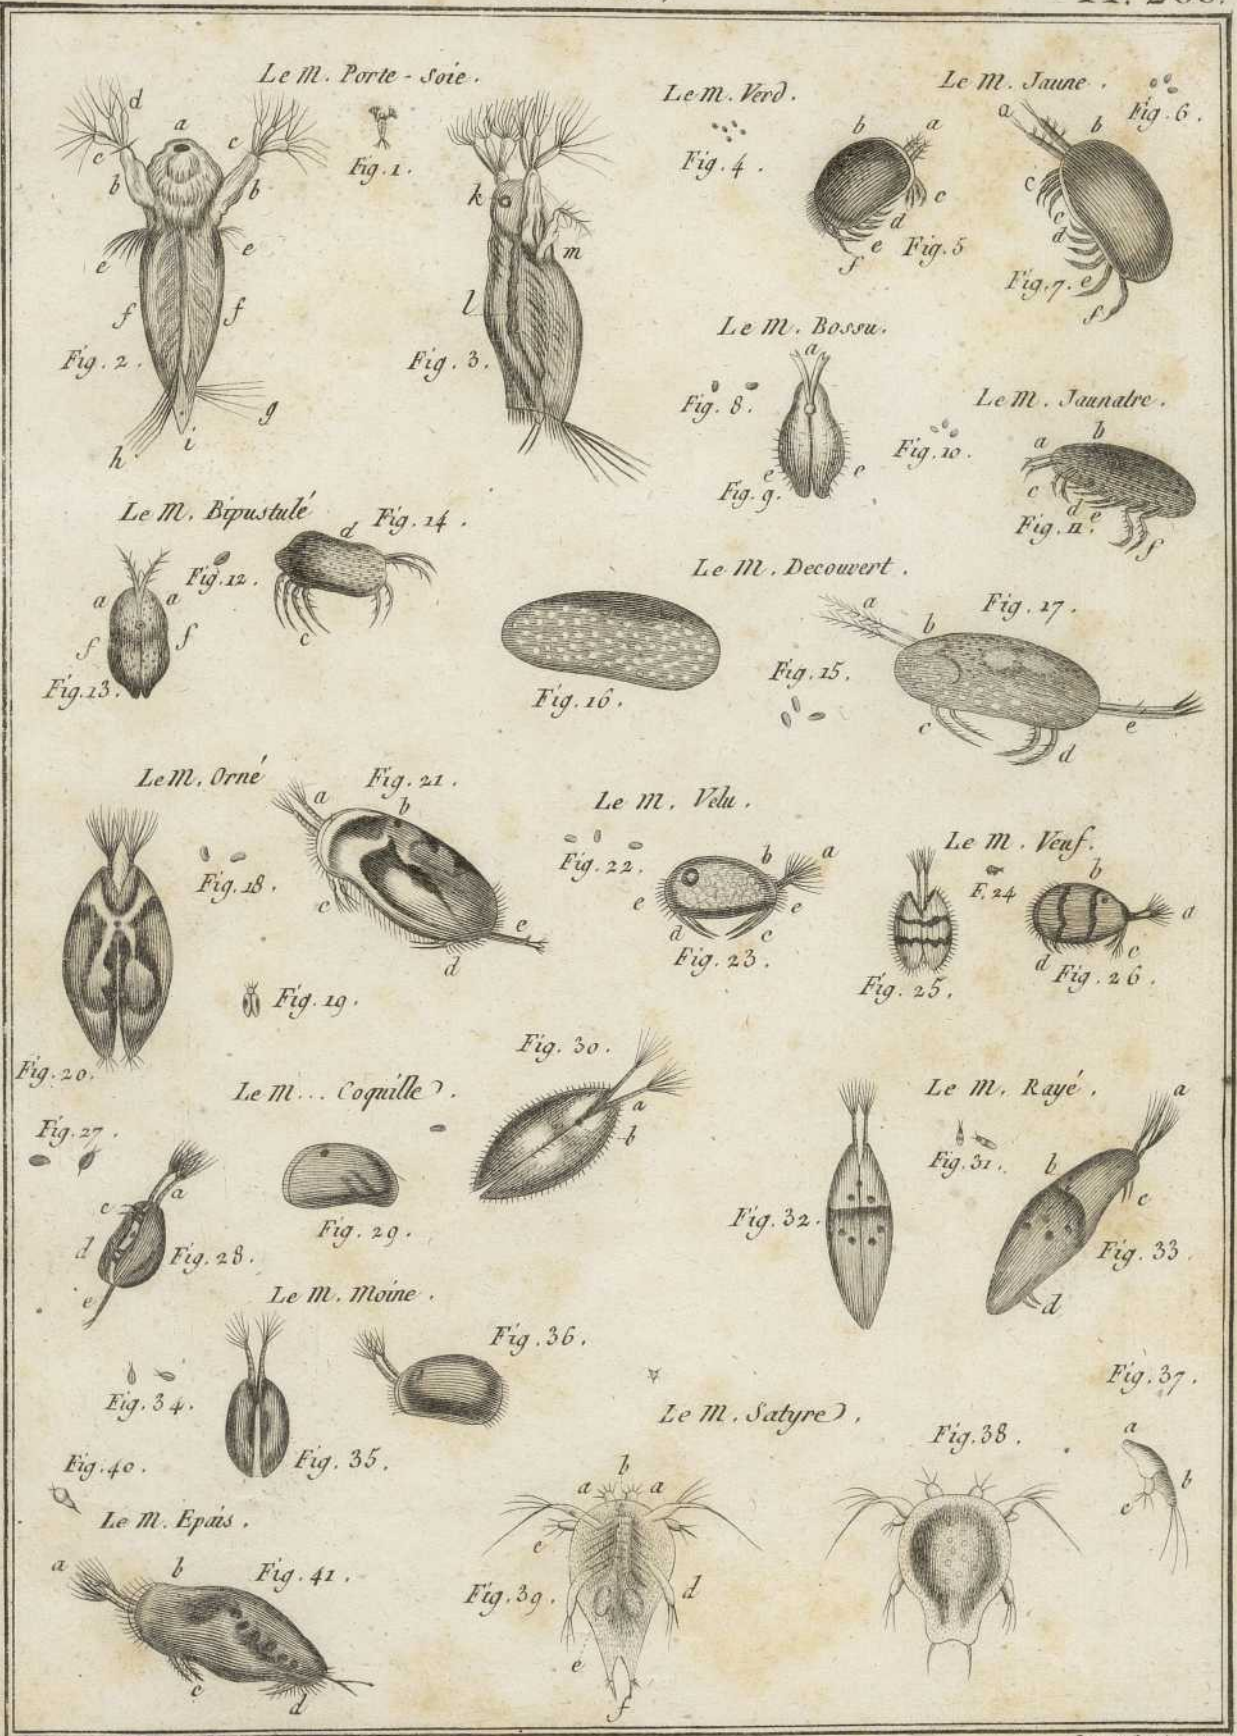 Le M. Porte-soie.
d
a
c
c
b
b
e
e
f
f
Fig. 2.
g
h
i
Fig. 1.
k
m
l
Fig. 3.
Le M. Verd.
Fig. 4.
b
a
c
d
e
f
Fig. 5
Le M. Jaune.
Fig. 6.
a
b
c
c
d
Fig. 7.
e
f
Le M. Bossu.
a
Fig. 8.
e
e
Fig. 9.
Le M. Jaunatre.
Fig. 10.
a
b
c
d
e
Fig. 11.
f
Le M. Bipustulé
Fig. 12.
a
a
f
f
Fig. 13.
d
Fig. 14.
c
Le M. Decouvert.
Fig. 15.
Fig. 16.
Fig. 17.
a
b
c
d
e
Le M. Orné
Fig. 18.
Fig. 19.
Fig. 20.
Fig. 21.
a
b
c
d
e
Le M. Velu.
Fig. 22.
b
a
e
e
d
c
Fig. 23.
Le M. Veuf.
F. 24
Fig. 25.
b
a
d
c
Fig. 26.
Le M... Coquille.
Fig. 27.
a
c
d
Fig. 28.
e
Fig. 29.
Fig. 30.
a
b
Le M. Rayé.
Fig. 31.
Fig. 32.
a
b
c
Fig. 33.
d
Le M. Moine.
Fig. 34.
Fig. 35.
Fig. 36.
Le M. Satyre.
Fig. 37.
a
b
c
Fig. 38.
b
a
a
c
Fig. 39.
d
e
f
Fig. 40.
Le M. Epais.
a
b
Fig. 41.
c
d